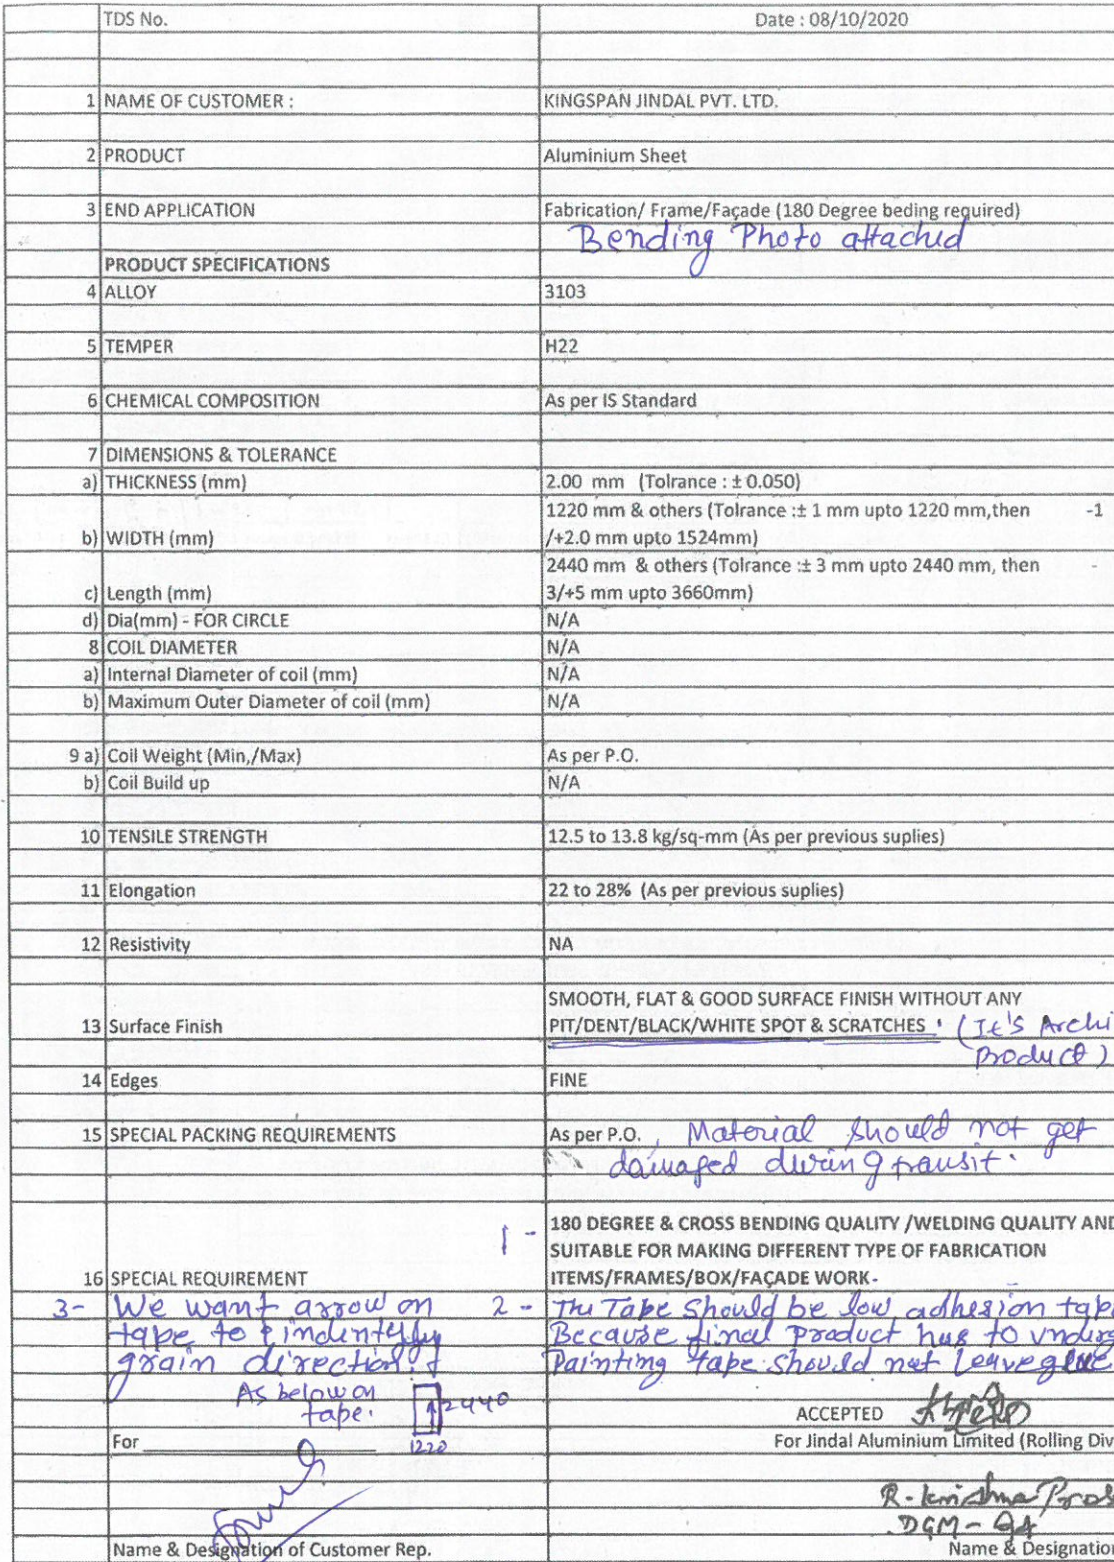 TDS No. Date : 08/10/2020
1 NAME OF CUSTOMER : KINGSPAN JINDAL PVT. LTD.
2 PRODUCT Aluminium Sheet
3 END APPLICATION Fabrication/ Frame/Façade (180 Degree beding required)
Bending Photo attached
PRODUCT SPECIFICATIONS
4 ALLOY 3103
5 TEMPER H22
6 CHEMICAL COMPOSITION As per IS Standard
7 DIMENSIONS & TOLERANCE
a) THICKNESS (mm) 2.00 mm (Tolrance : ± 0.050)
1220 mm & others (Tolrance :± 1 mm upto 1220 mm,then -1
b) WIDTH (mm) /+2.0 mm upto 1524mm)
2440 mm & others (Tolrance :± 3 mm upto 2440 mm, then -
c) Length (mm) 3/+5 mm upto 3660mm)
d) Dia(mm) - FOR CIRCLE N/A
8 COIL DIAMETER N/A
a) Internal Diameter of coil (mm) N/A
b) Maximum Outer Diameter of coil (mm) N/A
9 a) Coil Weight (Min,/Max) As per P.O.
b) Coil Build up N/A
10 TENSILE STRENGTH 12.5 to 13.8 kg/sq-mm (As per previous suplies)
11 Elongation 22 to 28% (As per previous suplies)
12 Resistivity NA
SMOOTH, FLAT & GOOD SURFACE FINISH WITHOUT ANY
13 Surface Finish PIT/DENT/BLACK/WHITE SPOT & SCRATCHES . (It's Archi
Product)
14 Edges FINE
15 SPECIAL PACKING REQUIREMENTS As per P.O. , Material should not get
damaged during transit.
1 - 180 DEGREE & CROSS BENDING QUALITY /WELDING QUALITY AND
SUITABLE FOR MAKING DIFFERENT TYPE OF FABRICATION
16 SPECIAL REQUIREMENT ITEMS/FRAMES/BOX/FAÇADE WORK-
3- We want arrow on
tape to indentefy
grain direction.
As below on
tape.
2440
1220
2 - The Tape should be low adhesion tape
Because final Product has to underg
Painting tape should not leave glue
ACCEPTED
For
For Jindal Aluminium Limited (Rolling Div
R-Krishna Pras
DGM - QA
Name & Designation of Customer Rep. Name & Designation